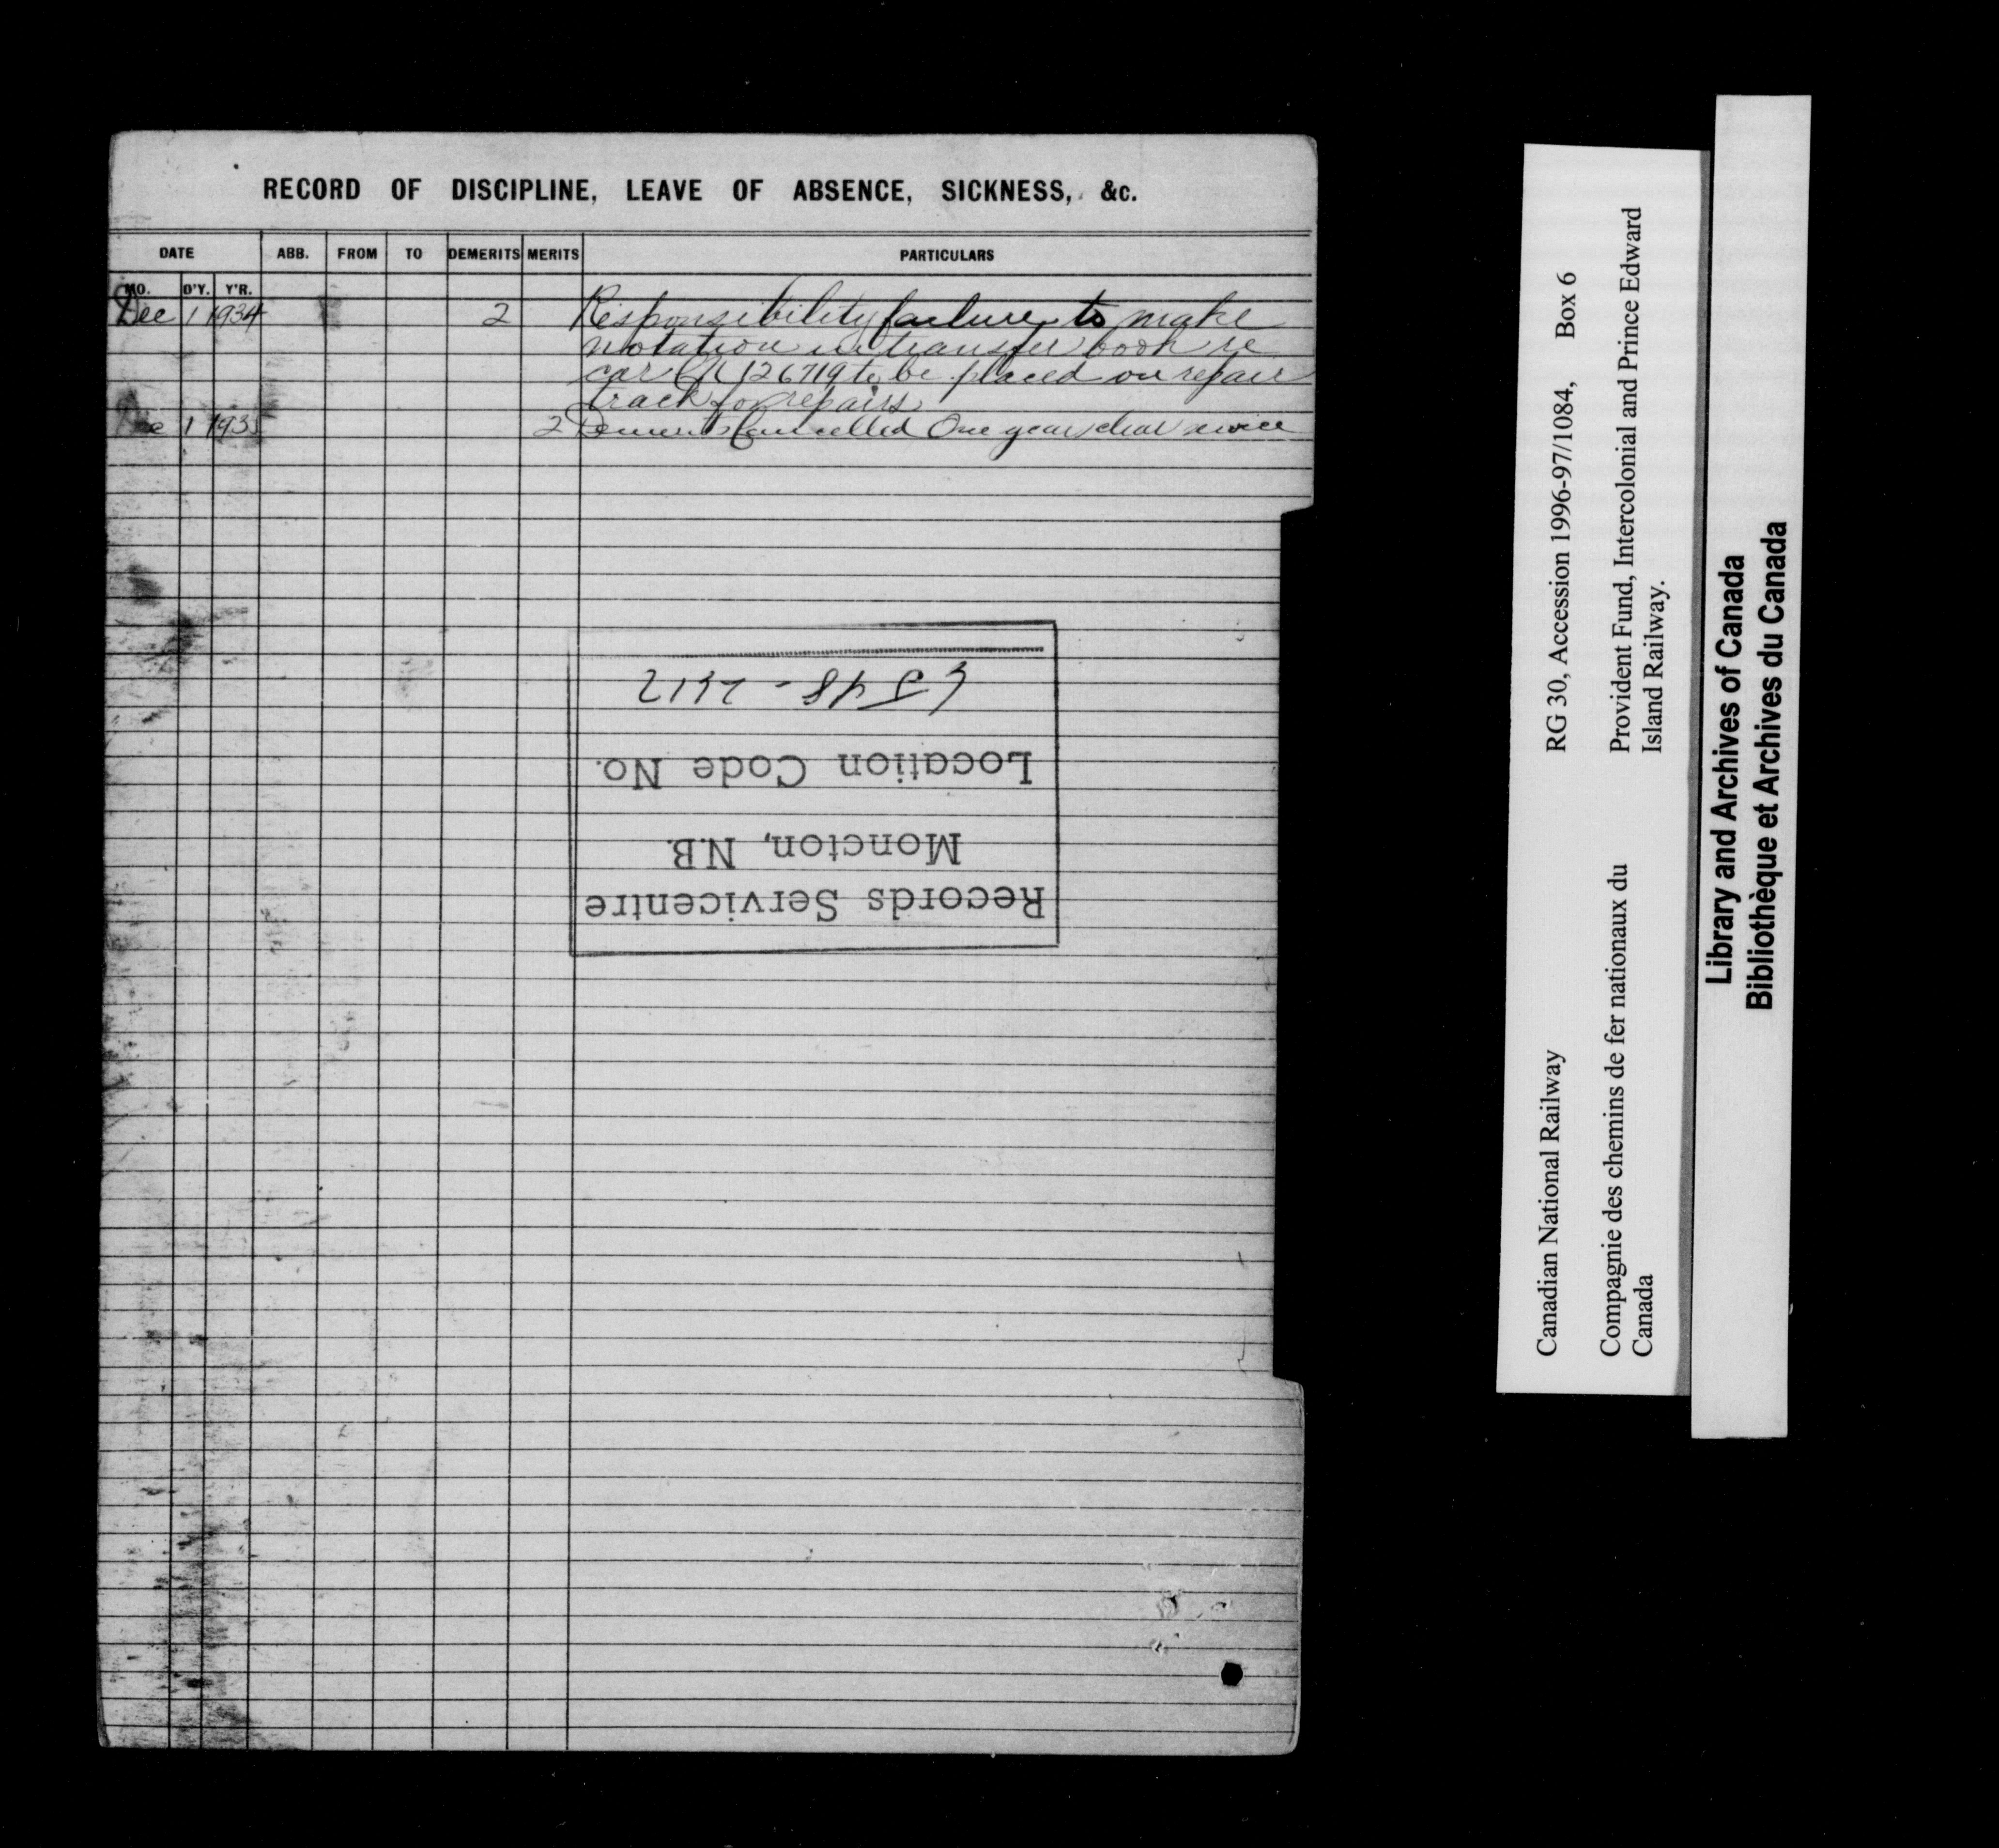 RECORD OF DISCIPLINE, LEAVE OF ABSENCE, SICKNESS, &c.
DATE ABB. FROM TO DEMERITS MERITS PARTICULARS
MO. D'Y. Y'R.
Dec 1 1934 2 Responsibility failure to make
notation in transfer book re
car 126719 to be placed on repair
track for repairs
Dec 1 1935 2 Demerits Cancelled One year clear service
Records Servicentre
Moncton, N.B.
Location Code No.
48-2312
Canadian National Railway RG 30, Accession 1996-97/1084, Box 6
Compagnie des chemins de fer nationaux du Provident Fund, Intercolonial and Prince Edward
Canada Island Railway.
Library and Archives of Canada
Bibliothèque et Archives du Canada